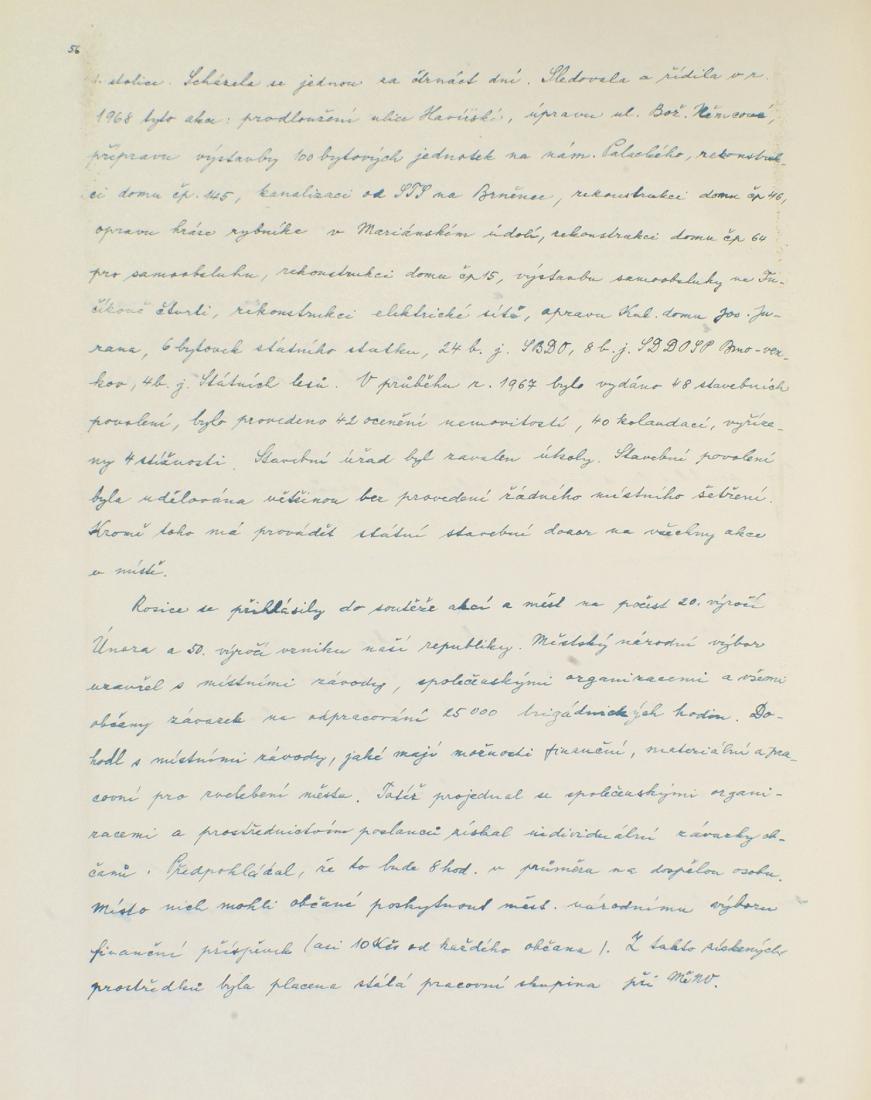 56
stolice. Scházela se jednou za čtrnáct dní. Sledovala a řídila v r.
1968 tyto akce: prodloužení ulice Havířské, úpravu ul. Bož. Němcové,
přípravu výstavby 100 bytových jednotek na nám. Palackého, rekonstruk-
ci domu čp. 145, kanalizaci od STS na Brněnce, rekonstrukci domu čp 46,
opravu hráze rybníka v Mariánském údolí, rekonstrukci domu čp 64
pro samoobsluhu, rekonstrukci domu čp 15, výstavbu samoobsluhy ve Fu-
číkově čtvrti, rekonstrukci elektrické sítě, opravu Kul. domu Jos. Ju-
rana, 6 bytovek státního statku, 24 b. j. SBDO, 8 b. j. SDDOSP Brno-ven-
kov, 4 b. j. Státních lesů. V průběhu r. 1967 bylo vydáno 48 stavebních
povolení, bylo provedeno 42 ocenění nemovitostí, 40 kolaudací, vyříze-
ny 4 stížnosti. Stavební úřad byl zavalen úkoly. Stavební povolení
byla udělována většinou bez provedení řádného místního šetření.
Kromě toho má provádět státní stavební dozor na všechny akce
v místě.
Rosice se přihlásily do soutěže akcí a měst na počest 20. výročí
Února a 50. výročí vzniku naší republiky. Městský národní výbor
uzavřel s místními závody, společenskými organizacemi a všemi
občany závazek na odpracování 25 000 brigádnických hodin. Do-
hodl s místními závody, jaké mají možnosti finanční, materiální a pra-
covní pro zvelebení města. Totéž projednal se společenskými organi-
zacemi a prostřednictvím poslanců získal individuální závazky ob-
čanů. Předpohládal, že to bude 8 hod. v průměru na dospělou osobu.
Místo nich mohli občané poskytnout měst. národnímu výboru
finanční příspěvek (asi 10 Kčs od každého občana). Z takto získených
prostředků byla placena stálá pracovní skupina při MěNV.